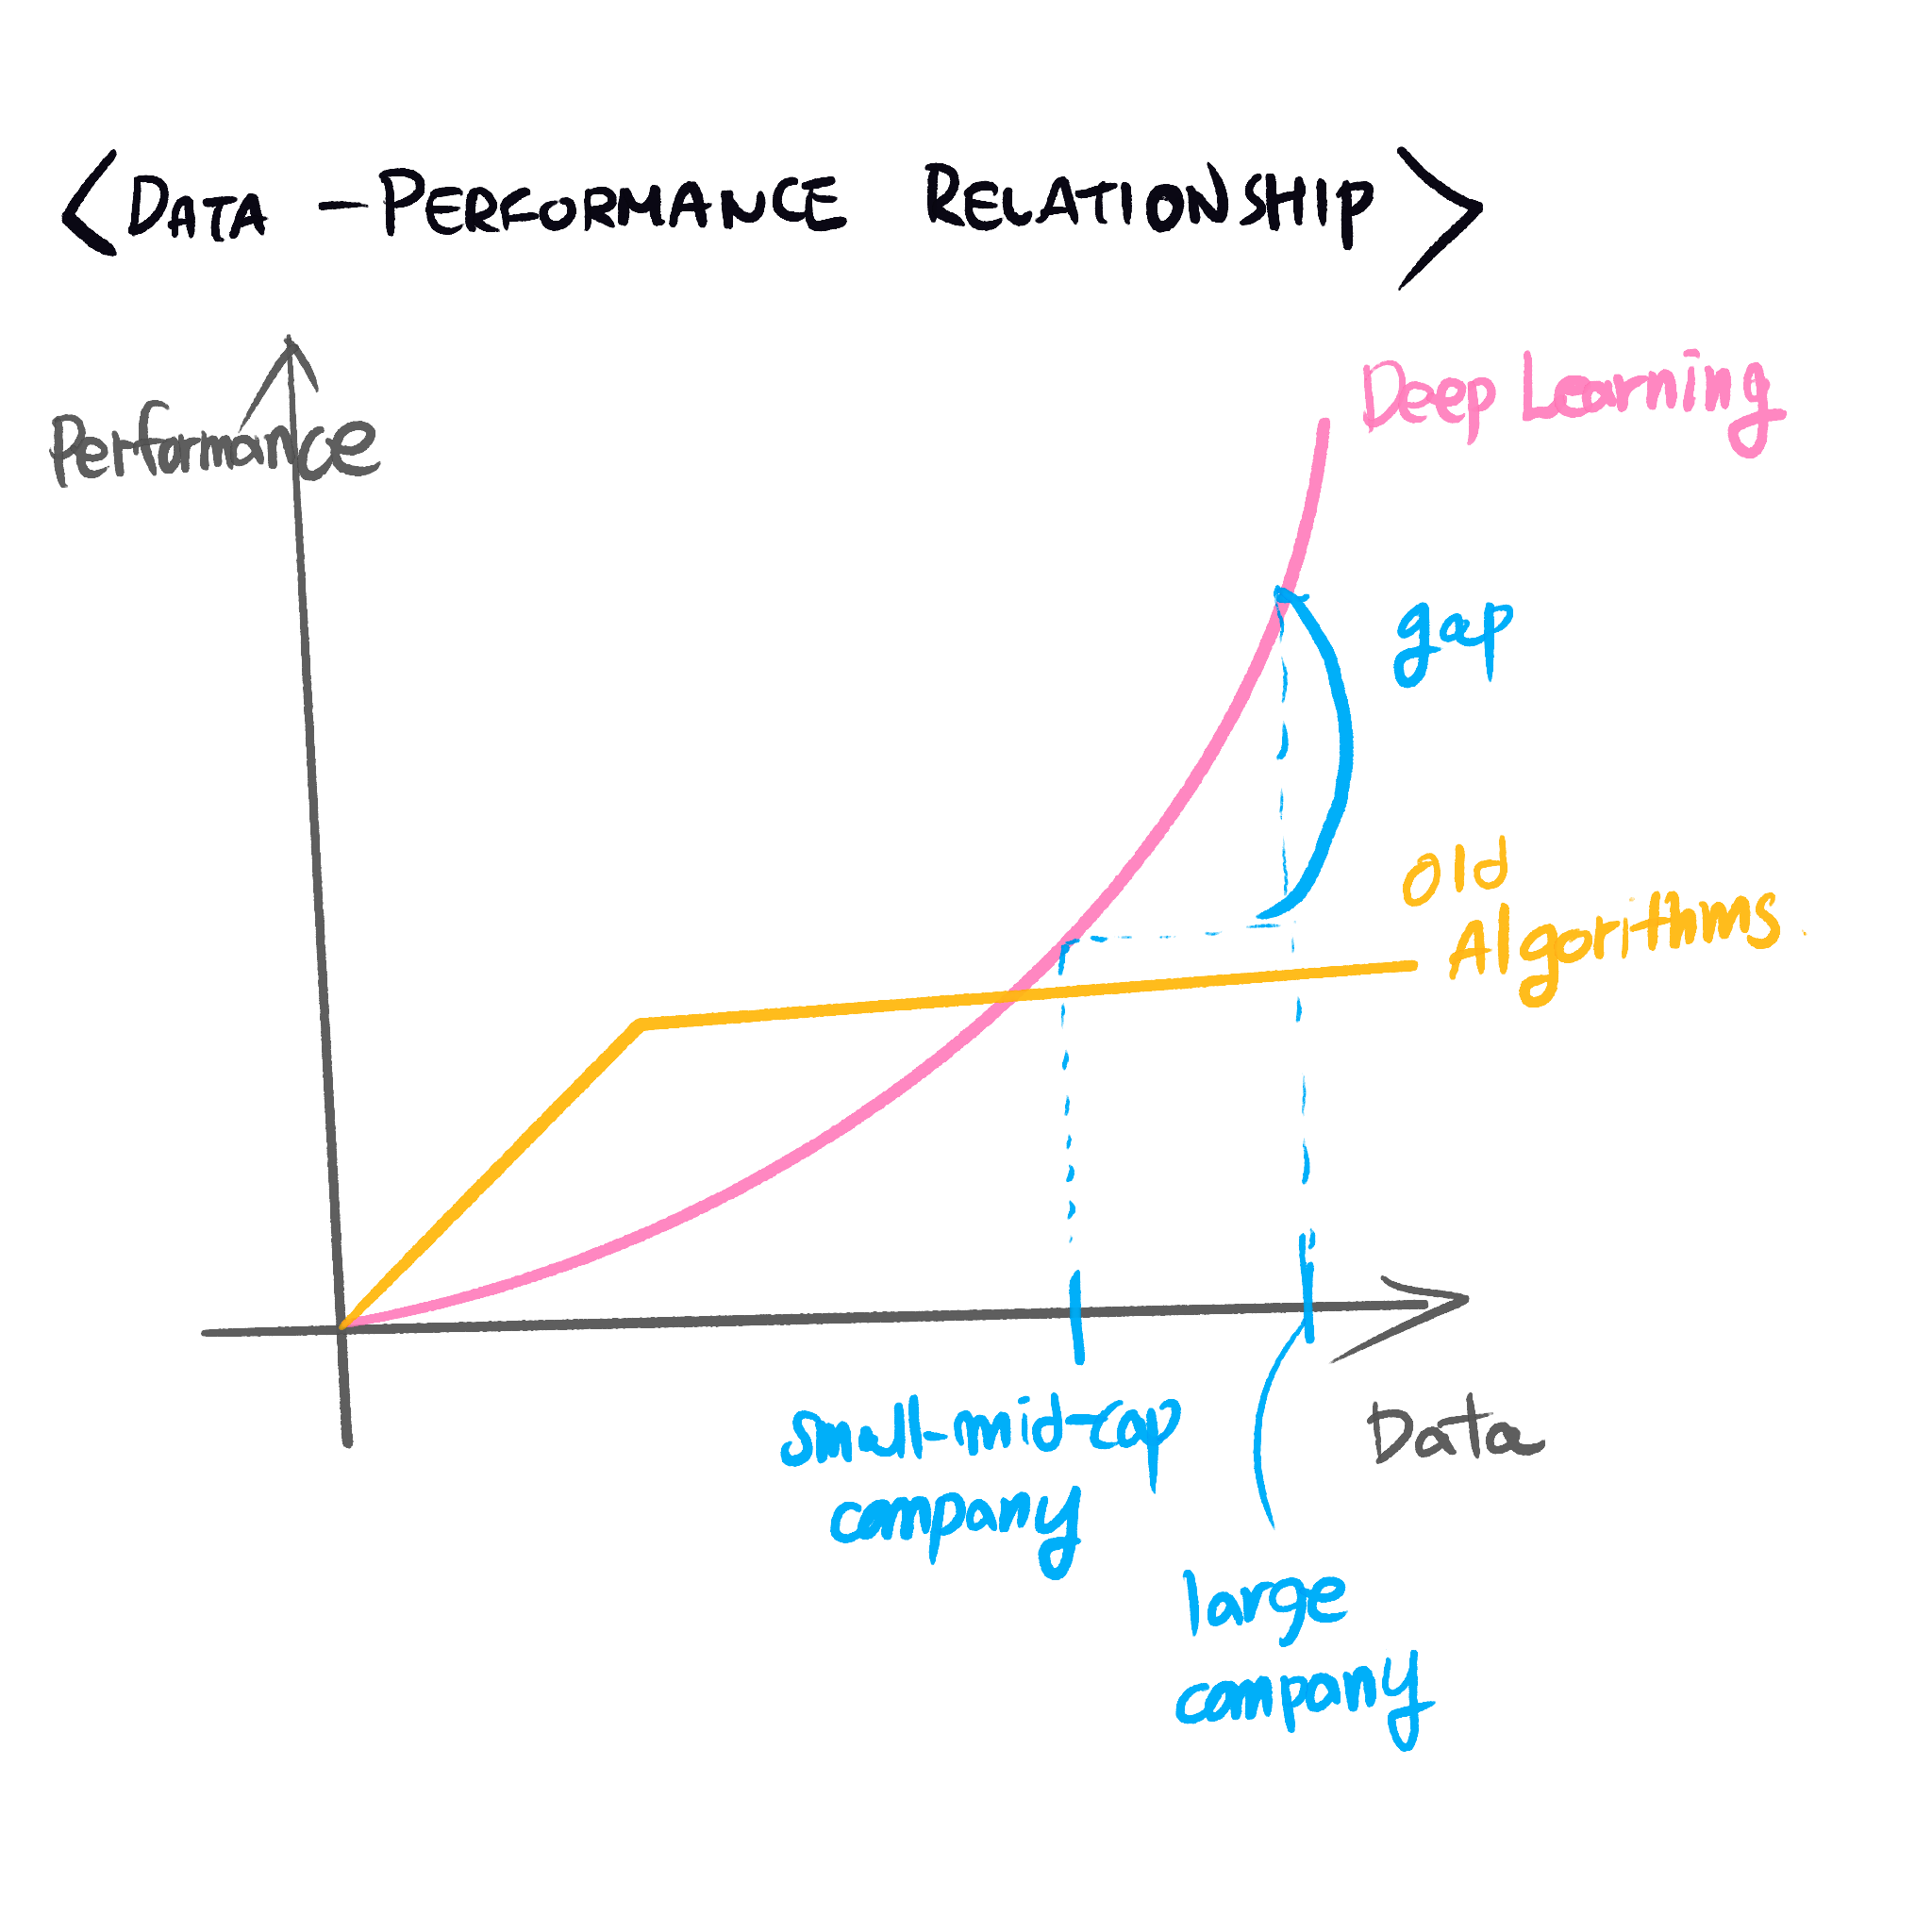 <DATA - PERFORMANCE RELATIONSHIP>
Performance
Deep Learning
gap
old
Algorithms.
small-mid-cap
company
Data
large
company